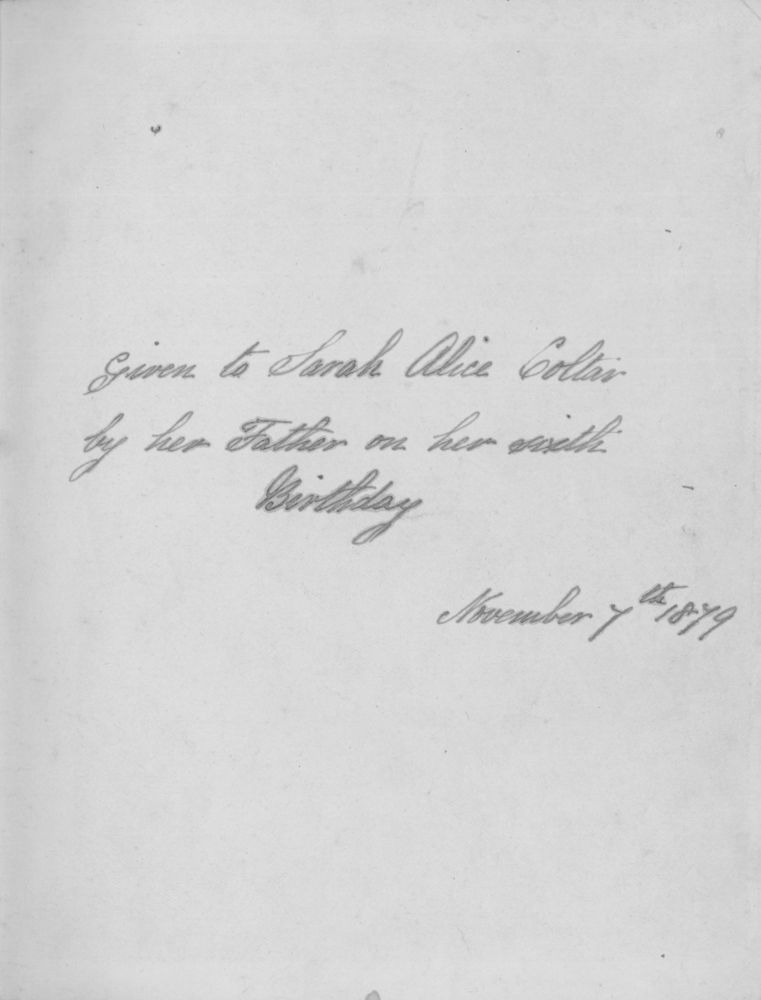 Given to Sarah Alice Coltar
by her Father on her sixth
Birthday
November 7th 1879